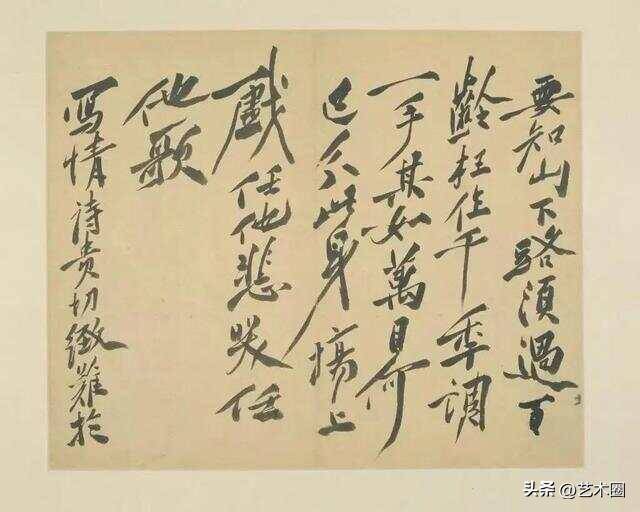 要知山下路須過百
齡枉作千年調
一手其如萬目何
已分此身場上
戲任他悲哭任
他歌
寫情詩貴切緻難於
头条 @艺术圈